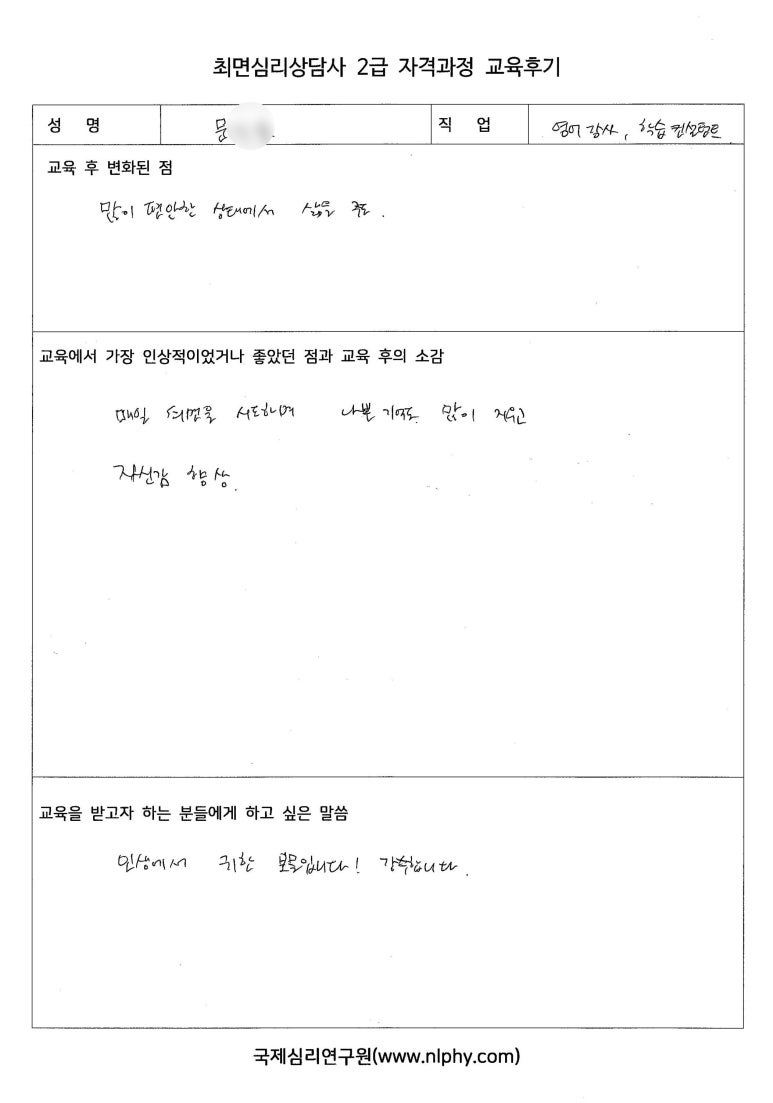 최면심리상담사 2급 자격과정 교육후기
성 명 문 직 업 영어강사, 학습컨설턴트
교육 후 변화된 점
많이 편안한 상태에서 삶을
교육에서 가장 인상적이었거나 좋았던 점과 교육 후의 소감
매일 최면을 시도하며 나쁜 기억도 많이 지우고
자신감 향상.
교육을 받고자 하는 분들에게 하고 싶은 말씀
인생에서 귀한 보물입니다! 강추합니다.
국제심리연구원(www.nlphy.com)